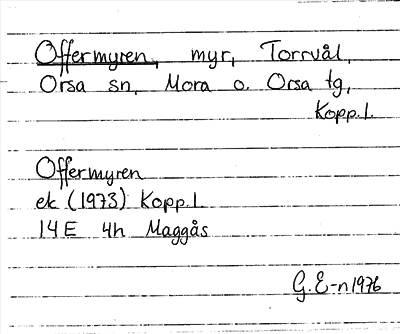 Offermyren, myr, Torrvål,
Orsa sn, Mora o. Orsa tg,
Kopp.l.
Offermyren
ek (1973) Kopp.l
14E 4h Maggås
G.E-n 1976